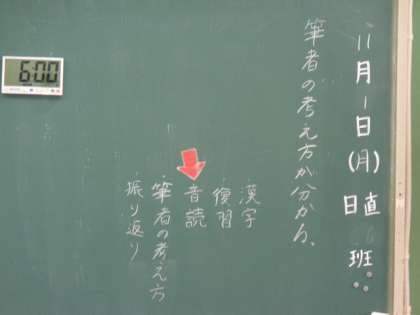 11月1日(月)
日直
班
筆者の考え方が分かり、
漢字
復習
音読
筆者の考え方
振り返り
6:00